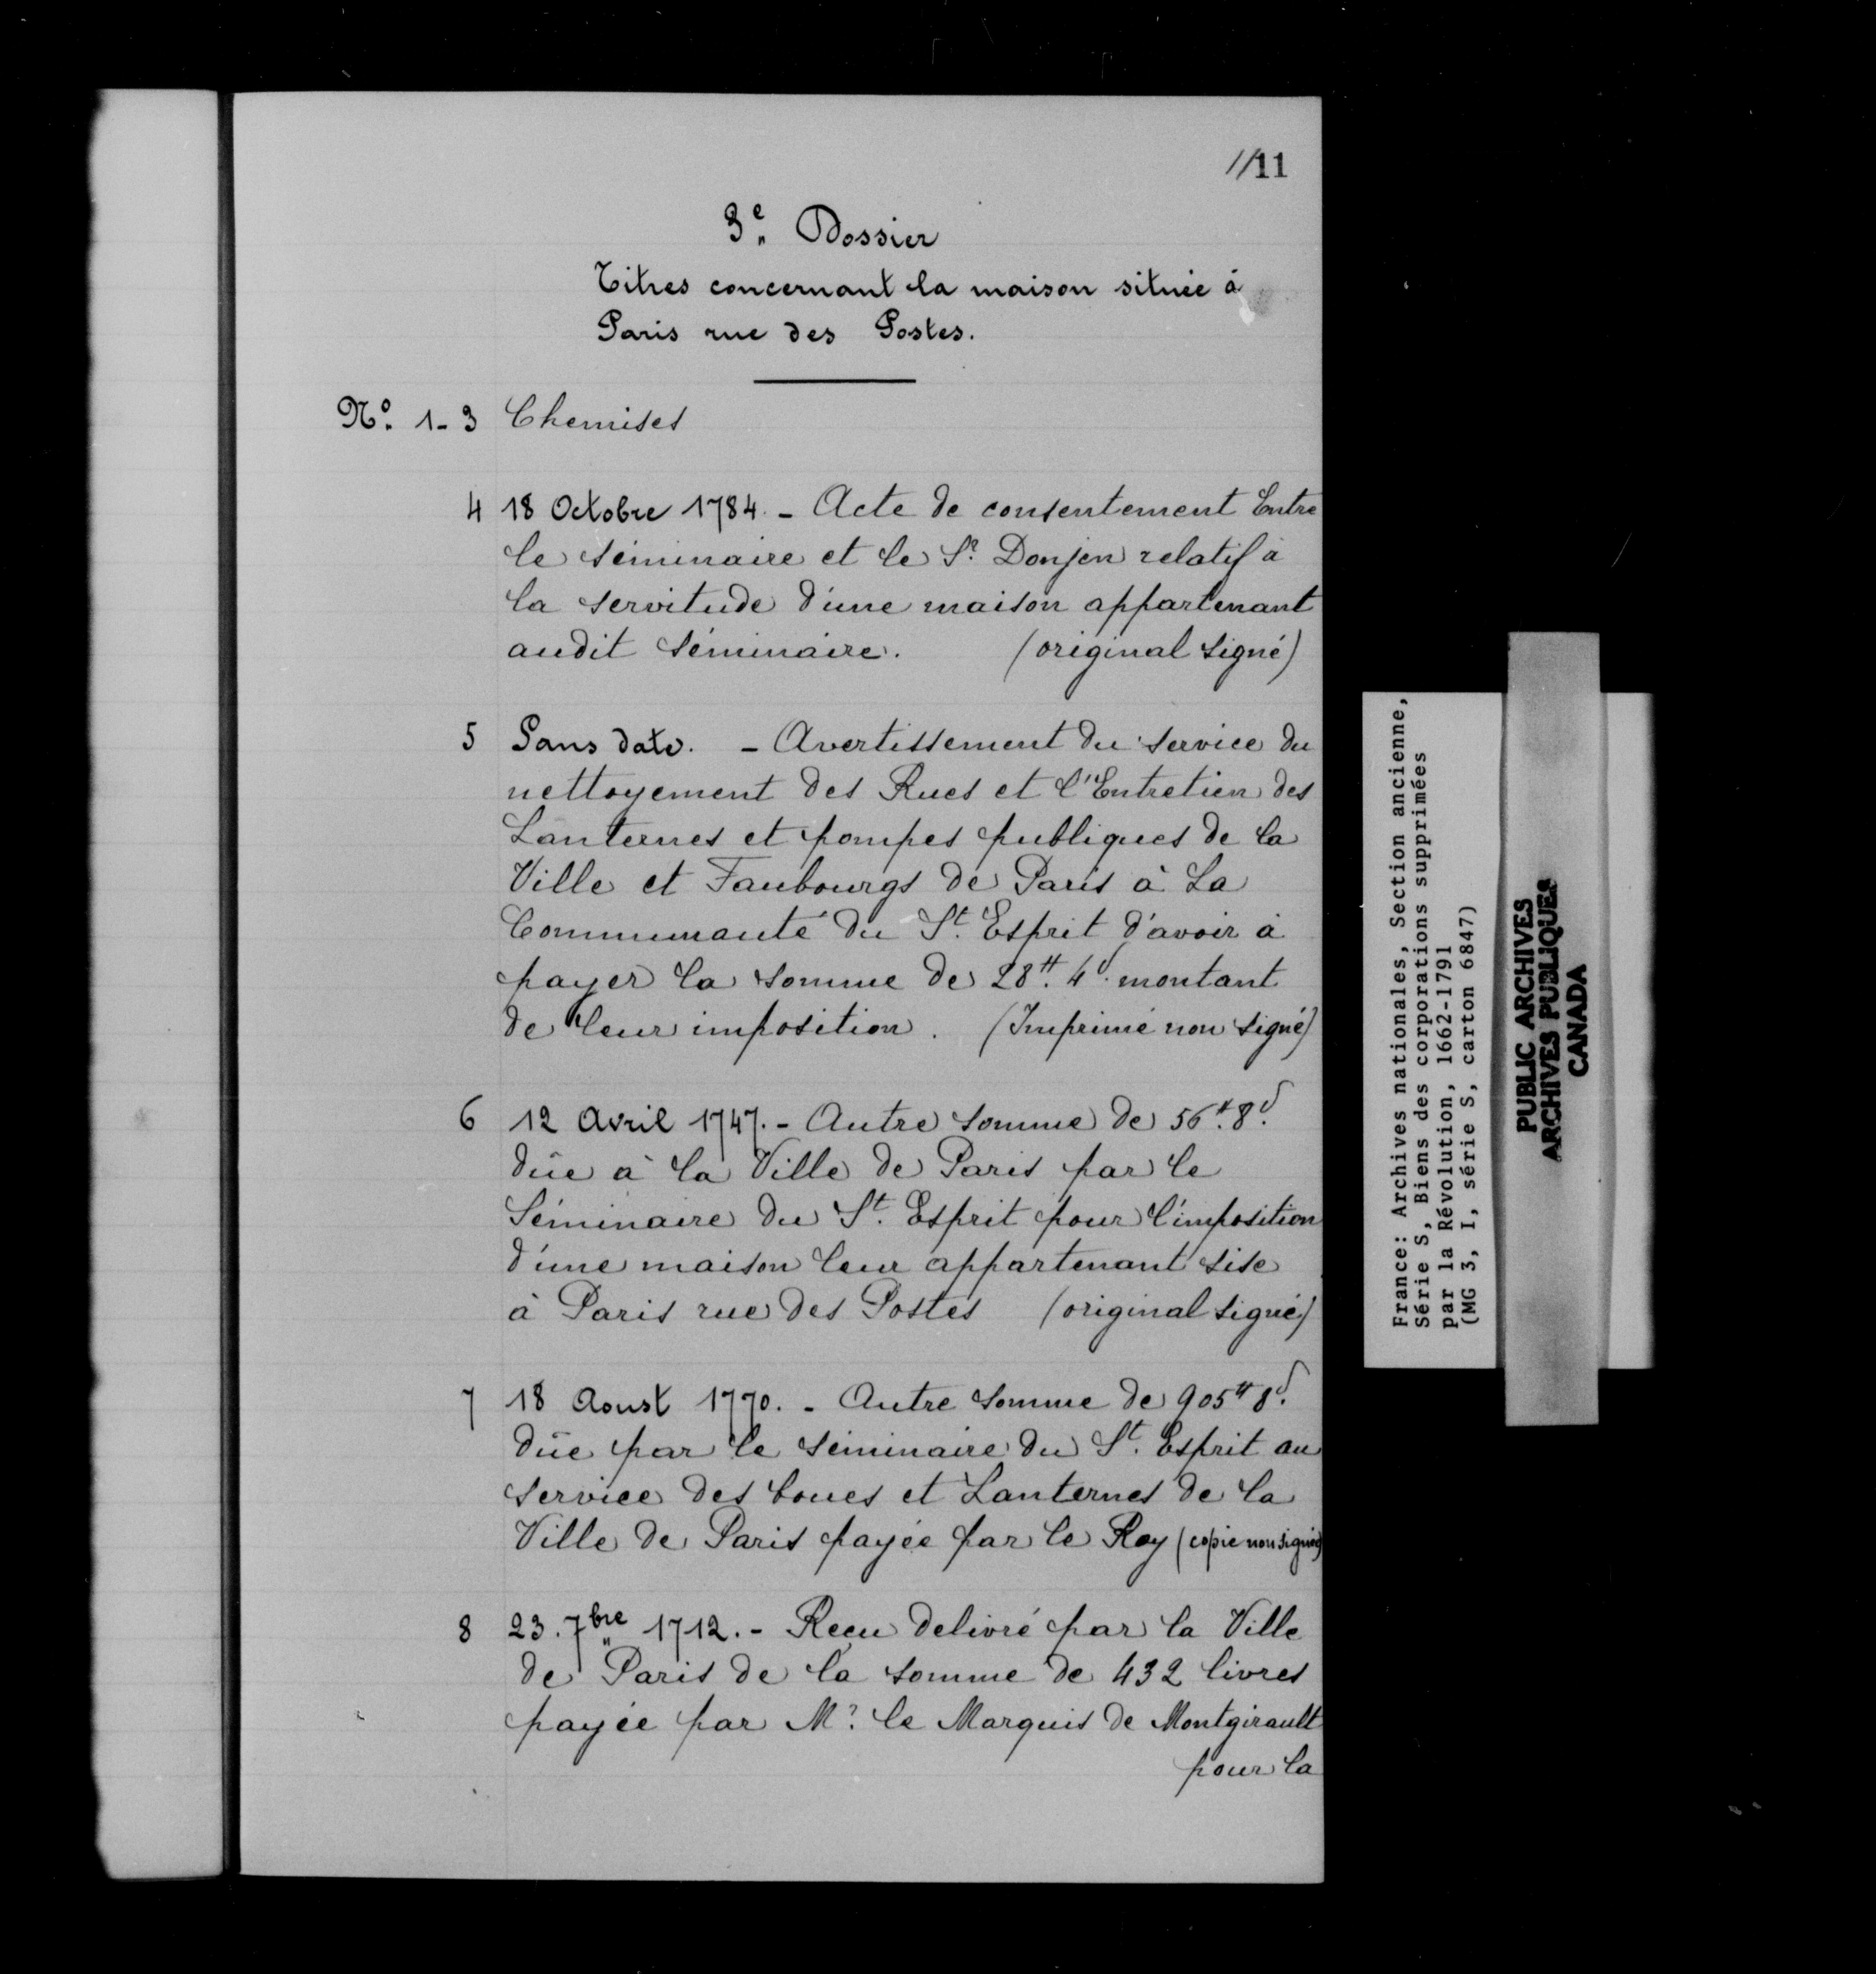 //11
3e. Dossier
Titres concernant la maison située à
Paris rue des Postes.
No. 1-3 Chemises
4 18 Octobre 1784. - Acte de consentement Entre
le séminaire et le Sr. Donjon relatif à
la servitude d'une maison appartenant
audit séminaire. (original signé)
5 Sans date. - Avertissement du service du
nettoyement des Rues et l'Entretien des
Lanternes et pompes publiques de la
Ville et Faubourgs de Paris à La
Communauté du St. Esprit d'avoir à
payer la somme de 28tt. 4d. montant
de leur imposition. (Imprimé non signé)
6 12 Avril 1747. - Autre somme de 56tt. 8d.
dûe à la Ville de Paris par le
Séminaire du St. Esprit pour l'imposition
d'une maison leur appartenant sise
à Paris rue des Postes (original signé)
7 18 Aoust 1770. - Autre somme de 905tt 8d.
dûe par le séminaire du St. Esprit au
service des boues et Lanternes de la
Ville de Paris payée par le Roy (copie non signée)
8 23. 7bre 1712. - Reçu delivré par la Ville
de Paris de la somme de 432 livres
payée par Mr. le Marquis de Montgirault
pour la
France: Archives nationales, Section ancienne,
Série S, Biens des corporations supprimées
par la Révolution, 1662-1791
(MG 3, I, série S, carton 6847)
PUBLIC ARCHIVES
ARCHIVES PUBLIQUES
CANADA